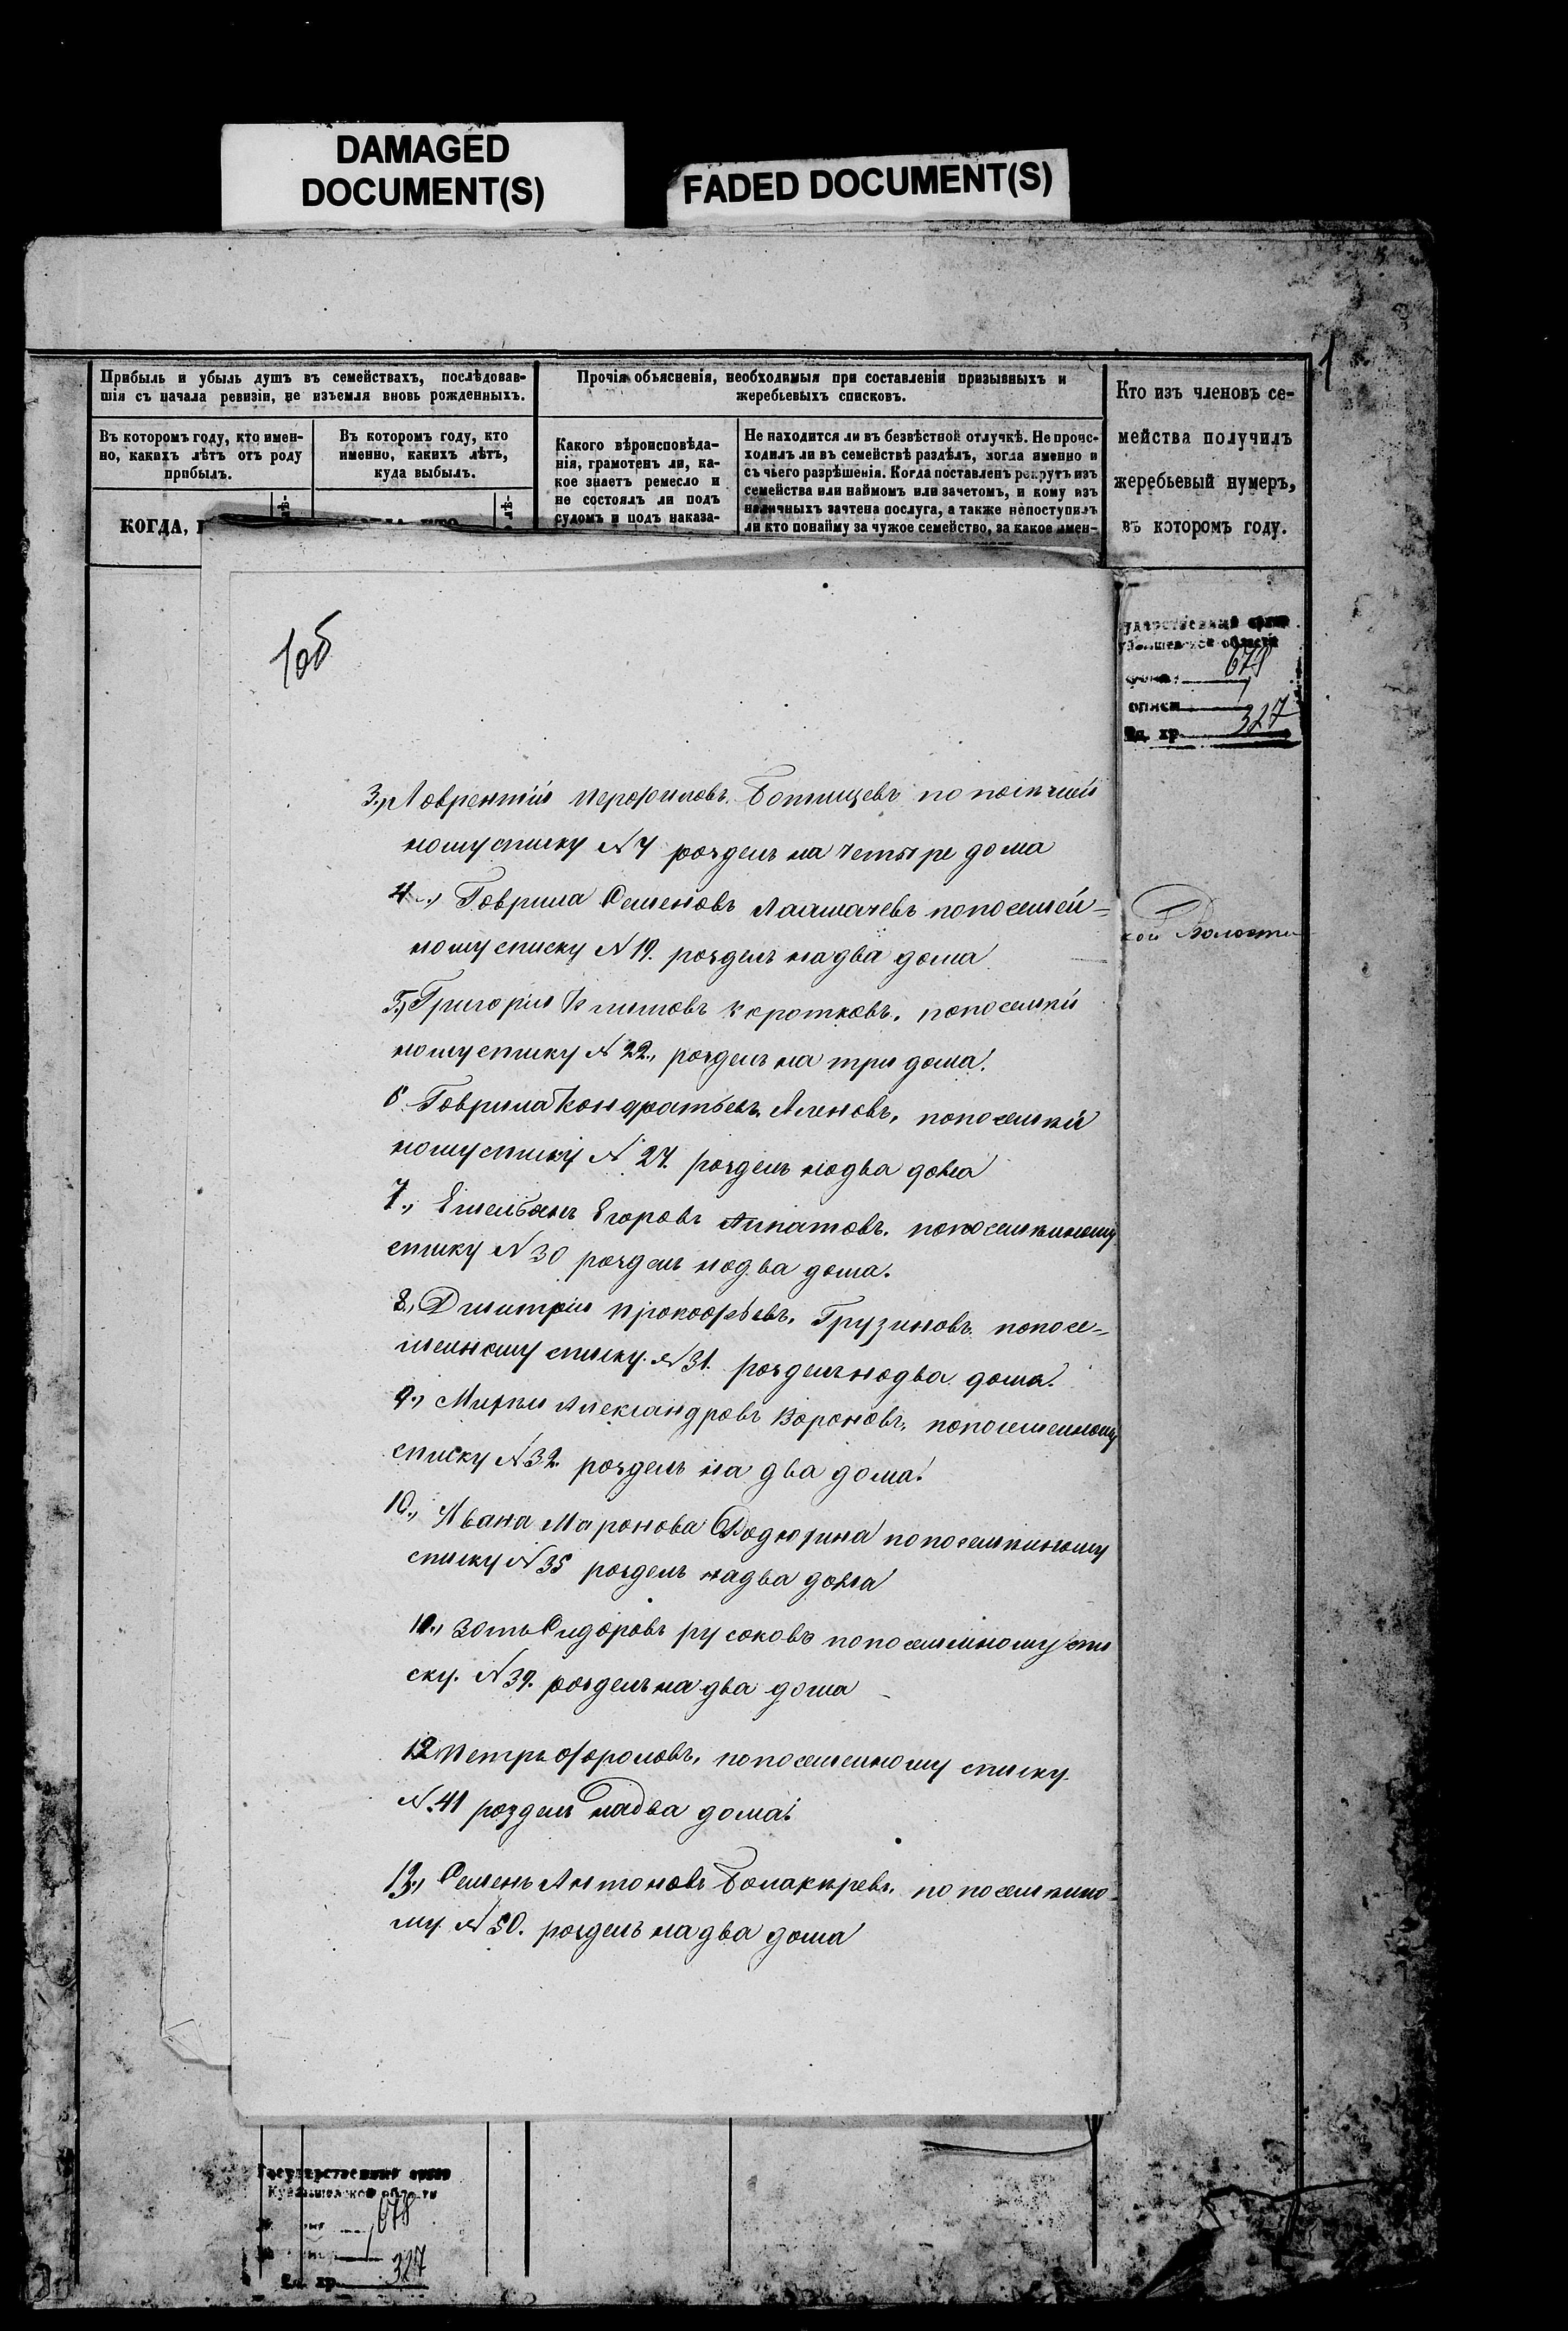 DAMAGED
DOCUMENT(S)
FADED DOCUMENT(S)
1
Прибыль и убыль душъ въ семействахъ, послѣдовав-
шія съ начала ревизіи, не изъемля вновь рожденныхъ.
Прочія объясненія, необходимыя при составленіи призывныхъ и
жеребьевыхъ списковъ.
Кто изъ членовъ се-
мейства получилъ
жеребьевый нумеръ,
въ которомъ году.
Въ которомъ году, кто имен-
но, какихъ лѣтъ отъ роду
прибылъ.
Въ которомъ году, кто
именно, какихъ лѣтъ,
куда выбылъ.
Какого вѣроисповѣда-
нія, грамотенъ ли, ка-
кое знаетъ ремесло и
не состоялъ ли подъ
судомъ и подъ наказа-
Не находится ли въ безвѣстной отлучкѣ. Не проис-
ходилъ ли въ семействѣ раздѣлъ, когда именно и
съ чьего разрѣшенія. Когда поставленъ рекрутъ изъ
семейства или наймомъ или зачетомъ, и кому изъ
наличныхъ зачтена послуга, а также непоступилъ
ли кто понайму за чужое семейство, за какое имен-
КОГДА,
1об
678
1
описи
327
Ед. хр.
кой Волости
3., Лаврентий
ному списку №7 роздел на четыре дома
4., Гаврила Семеновъ попосемей=
ному списку №19. роздел на два дома
5., Григорий Климовъ Коротковъ, попосемей
ному списку №22., роздел на три дома.
6 Гаврила Кондратьевъ попосемей
ному списку № 27. роздел на два дома
7., Емельянъ Егоровъ попосемейному
списку №30 роздел на два дома.
8., Дмитрий Прокофьевъ, Грузиновъ попосе=
мейному списку. №31. роздел на два дома.
9., Александровъ Вороновъ, попосемейному
списку №32. роздел на два дома.
10., Ивана Миронова попосемейному
списку №35 роздел на два дома
11., Зотъ Сидоровъ русаковъ попосемейному спи
ску. №39. роздел на два дома
12 Петръ Фроловъ, попосемейному списку
№.41 роздел на два дома.
13., Семенъ Антоновъ попосемейно-
му №50. роздел на два дома
Государственный архив
Куйбышевской области
678
1
327
Ед. хр.